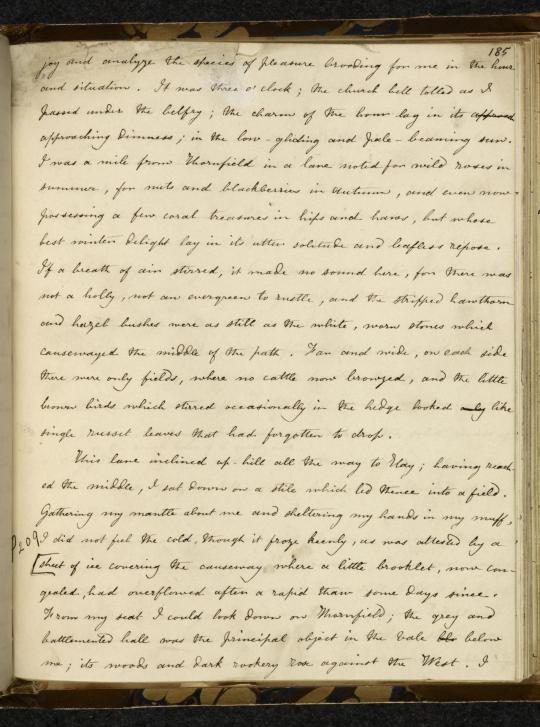 185
joy and analyze the species of pleasure brooding for me in the hour
and situation. It was three o'clock; the church bell tolled as I
passed under the belfry; the charm of the hour lay in its approach
approaching dimness; in the low-gliding and pale-beaming sun.
I was a mile from Thornfield in a lane noted for wild roses in
summer, for nuts and blackberries in autumn, and even now
possessing a few coral treasures in hips and haws, but whose
best winter delight lay in its utter solitude and leafless repose.
If a breath of air stirred, it made no sound here, for there was
not a holly, not an evergreen to rustle, and the stripped hawthorn
and hazel bushes were as still as the white, worn stones which
causewayed the middle of the path. Far and wide, on each side
there were only fields, where no cattle now browzed, and the little
brown birds which stirred occasionally in the hedge looked like
single russet leaves that had forgotten to drop.
This lane inclined up-hill all the way to Hay; having reach-
ed the middle, I sat down on a stile which led thence into a field.
Gathering my mantle about me and sheltering my hands in my muff,
I did not feel the cold, though it froze keenly, as was attested by a
P209
[sheet of ice covering the causeway where a little brooklet, now con-
gealed, had overflowed after a rapid thaw some days since.
From my seat I could look down on Thornfield; the grey and
battlemented hall was the principal object in the vale below
me; its woods and dark rookery rose against the West. I